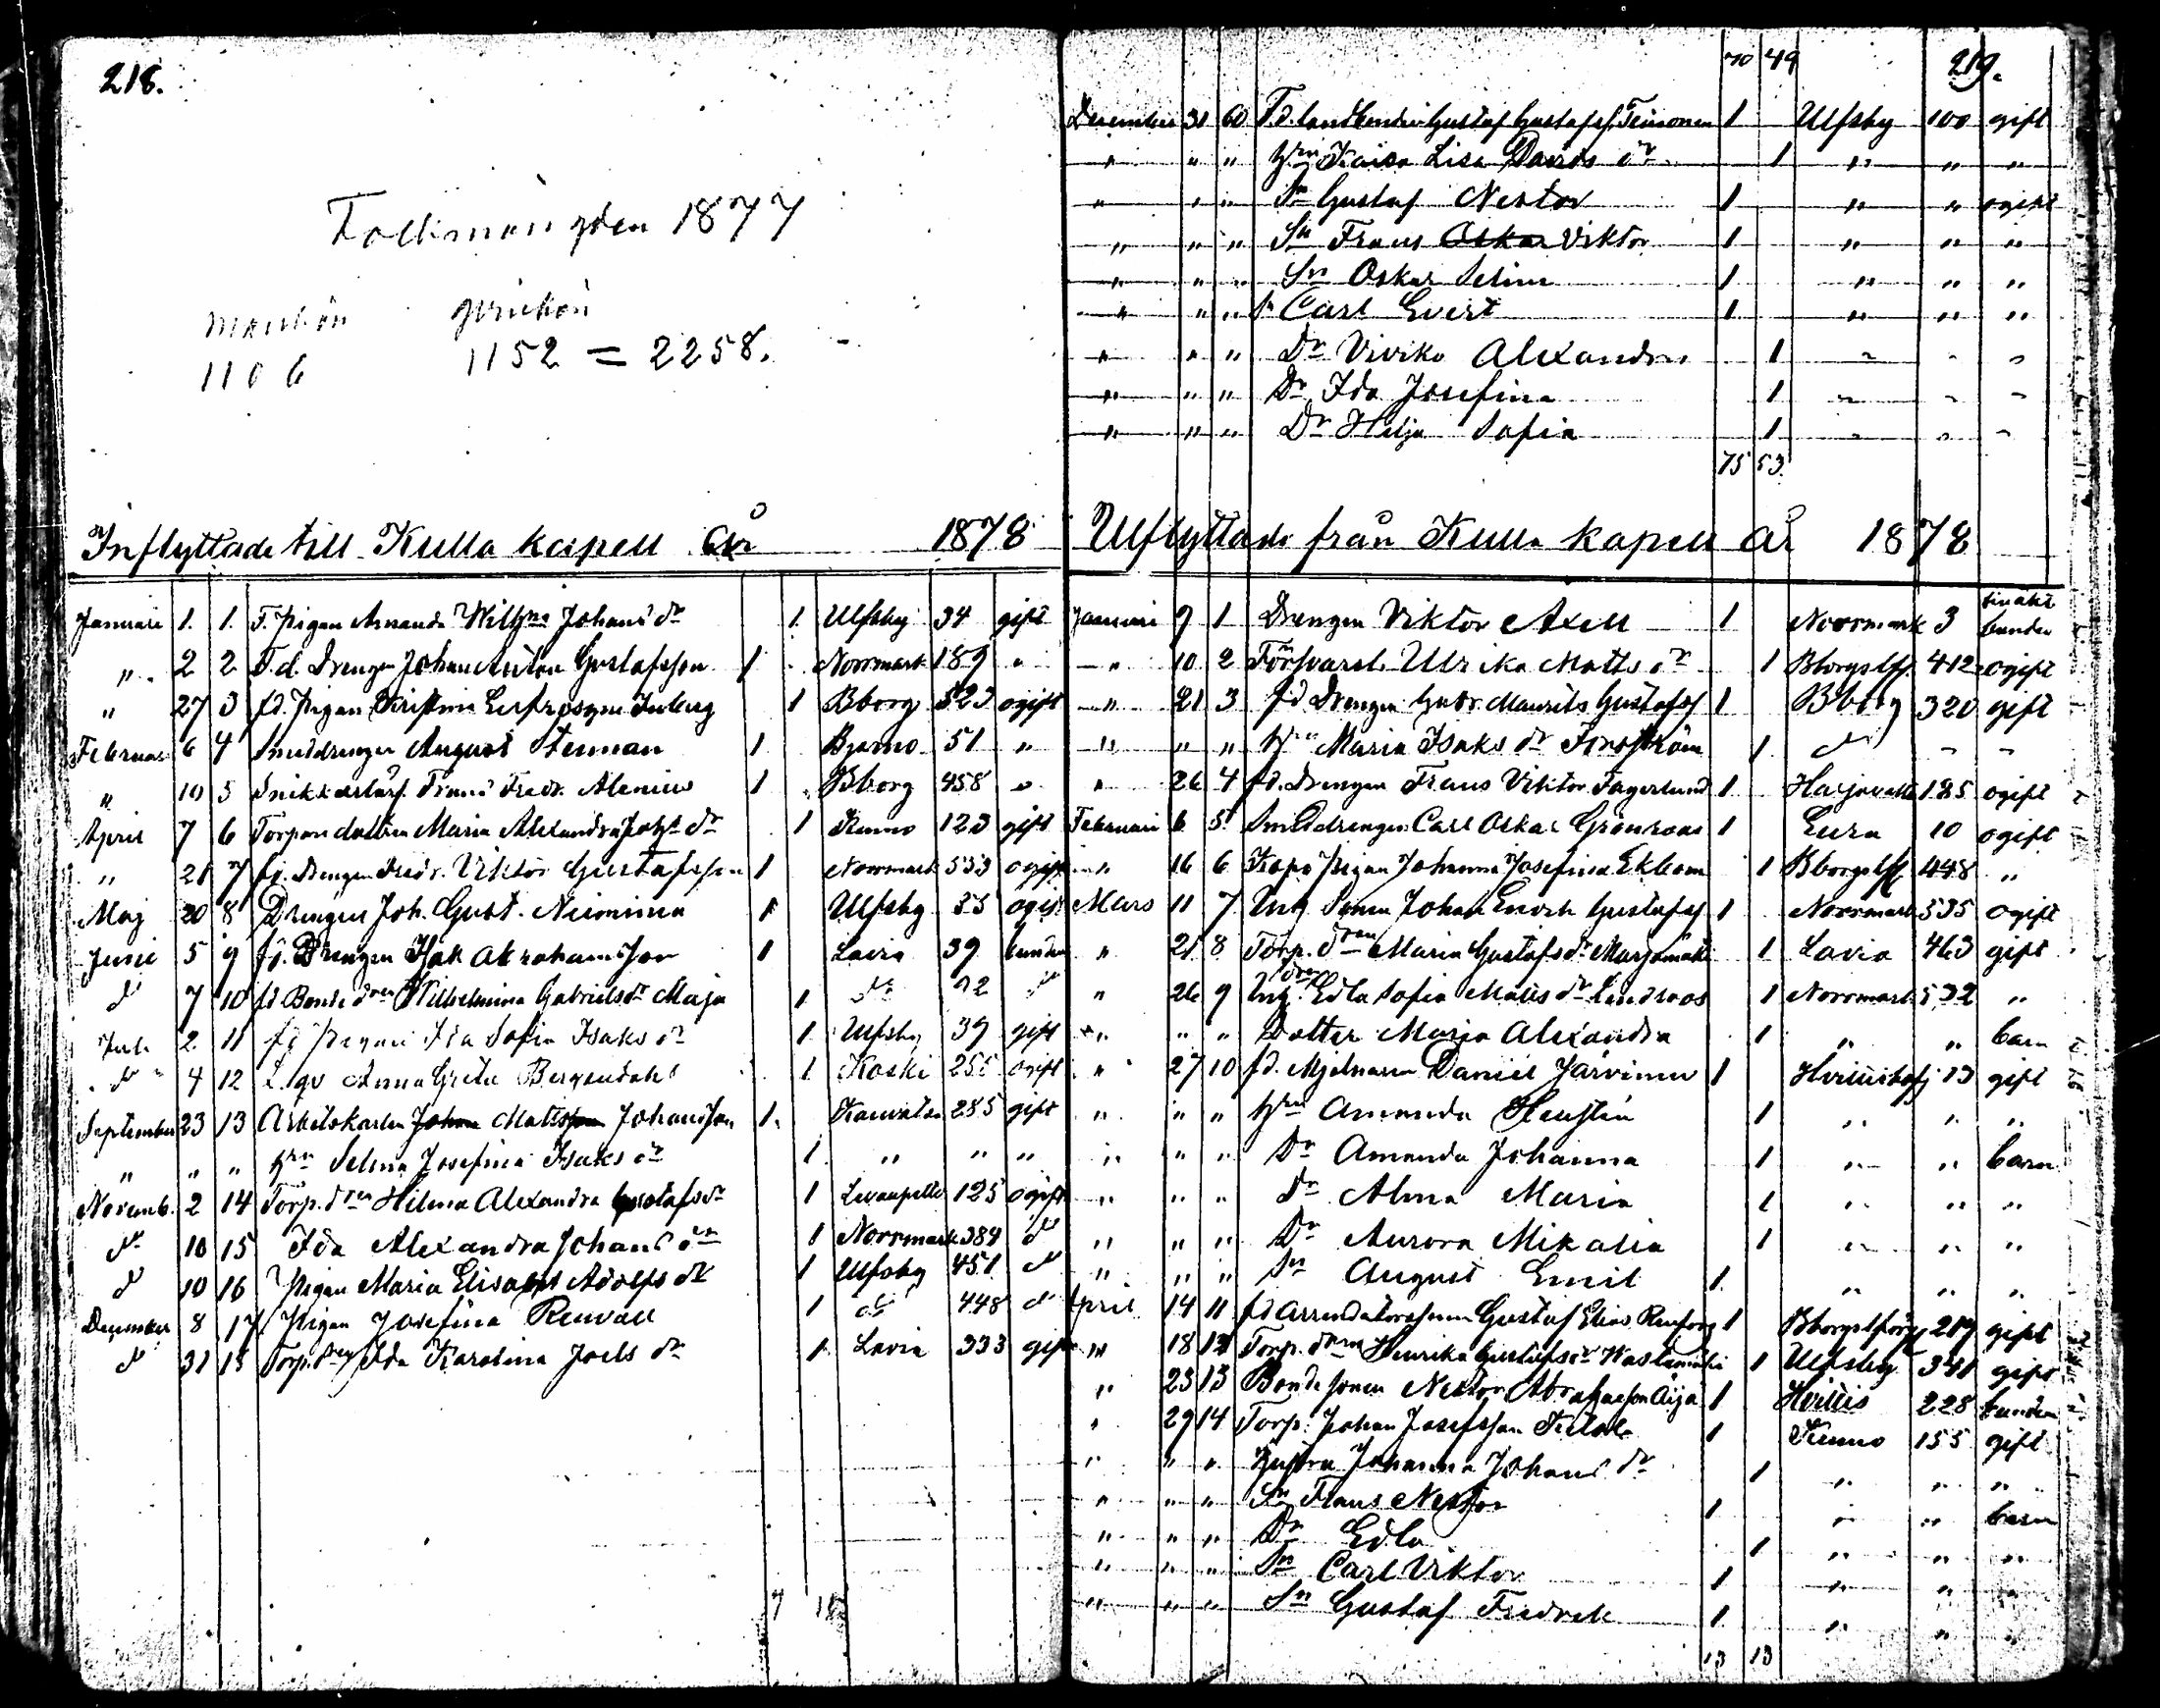 218.
Folkmängden 1877
mankön qvinkön
1106 1152 = 2258.
Inflyttade till Kulla kapell år 1878
Januari 1. 1. F. Pigan Amanda Wilh:na Johans dr 1. Ulfsby 34 gift
" 2 2 F.d. Drengen Johan Anton Gustafsson 1 Norrmark 189 "
" 27 3 fd. Pigan Kristina Eufrosyne 1 Bborg 523 ogift
Februari 6 4 Smeddrengen August Stenman 1 Bjerno 51 "
" 10 5 Snikkarlärl. Frans Fredr. Alenius 1 Bborg 458 "
April 7 6 Torparedottren Maria Alexandra Joh:s dr 1 Kumo 123 gift
" 21 7 fd. Drengen Fredr. Viktor Gustafsson 1 Norrmark 533 ogift
Maj 20 8 Drengen Joh. Gust. Nieminen 1 Ulfsby 33 ogift
Juni 5 9 fd. Drengen Isak Abrahamsson 1 Lavia 39 bunden
d 7 10 fd Bonde dren Wilhelmina Gabrielsdr Maja 1 dr 92 d
Juli 2 11 fd Pigan Ida Sofia Isaks dr 1 Ulfsby 39 gift
d 4 12 Anna Greta Bergendahl 1 Koski 255 ogift
September 23 13 Arbetskarlen Johan Mattsson Johansson 1. 285 gift
" " " Hu Selma Josefina Isaks dr 1 " " "
Novemb. 2 14 Torp. dren Hilma Alexandra Gustafsdr 1 125 ogift
d 10 15 Ida Alexandra Johans dr 1 Norrmark 384 d
d 10 16 Pigan Maria Elisabet Adolfs dr 1 Ulfsby 451 d
December 8 17 Pigan Josefina Renvall 1 dr 448 d
d 31 18 Torp. dren Ida Karolina Joels dr 1 Lavia 333 gift
7
70 49 219.
December 31 60 F.d. Landbonden Gustaf Gustafss. 1 Ulfsby 100 gift
" " " Hru Kaisa Lisa Davids dr 1 " " "
" " " Sn Gustaf Nestor 1 " " ogift
" " " Sn Frans Oskar Viktor 1 " " "
" " " Sn Oskar Selim 1 " " "
" " " Sn Carl Evert 1 " " "
" " " Dr Viviko Alexandra 1 " " "
" " " Dr Ida Josefina 1 " " "
" " " Dr Hilja Sofia 1 " " "
75 53
Utflyttade från Kulla kapell år 1878
Januari 9 1 Drengen Viktor Axell 1 Norrmark 3 bunden
" 10 2 Ulrika Matts dr 1 Bborgslf. 412 ogift
" 21 3 fd Drengen Gust. Maurits Gustafss 1 Bborg 320 gift
" " " Hru Maria Isaks dr 1 d " "
" 26 4 fd. Drengen Frans Viktor Fagerlund 1 Harjavalta 185 ogift
Februari 6 5 Smeddrengen Carl Oskar Grönroos 1 Eura 10 ogift
" 16 6 Pigan Johanna Josefina Ekbom 1 Bborgslf 448 "
Mars 11 7 Ung. Sonen Johan Enock Gustafss 1 Norrmark 535 ogift
" 21 8 Torp. dren Maria Gustafs dr Marjamäki 1 Lavia 463 gift
" 26 9 Ing. dren Edla Sofia Matts dr Lindroos 1 Norrmark 532 "
" " " Dotter Maria Alexandra 1 " " barn
" 27 10 fd. Mjölnaren Daniel Järvinen 1 13 gift
" " " Hru Amanda 1 " " "
" " " Dr Amanda Johanna 1 " " barn
" " " dr Alma Maria 1 " " "
" " " Dr Aurora Mikalia 1 " " "
" " " Sn August Emil 1 " " "
April 14 11 fd Arrendatorsonen Gustaf Elias Renfors 1 219 gift
" 18 12 Torp. dren Henrika Gustafs dr 1 Ulfsby 341 gift
" 23 13 Bondesonen Nestor Abrahamsson Äijä 1 Hvittis 228 bunden
" 29 14 Torp. Johan Josefsson 1 Kumo 155 gift
" " " Hustru Johanna Johans dr 1 " " "
" " " Sn Frans Nestor 1 " " barn
" " " Dr Edla 1 " " "
" " " Sn Carl Viktor 1 " " "
" " " Sn Gustaf Fredrik 1 " " "
13 13